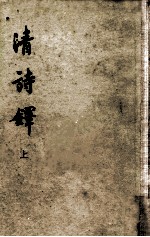 清詩鐸
上